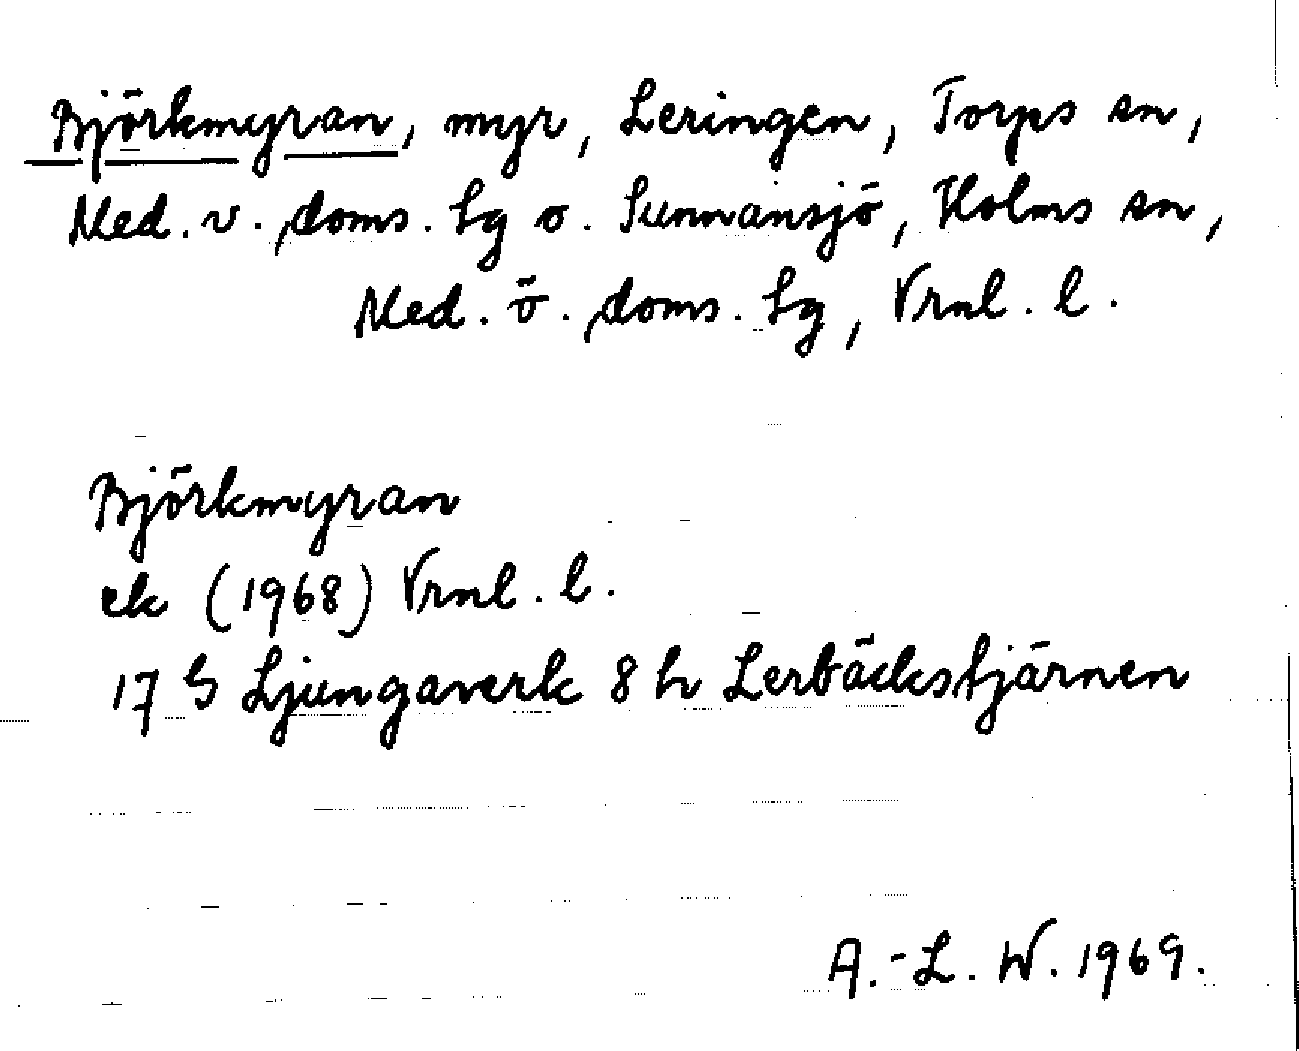 Björkmyran, myr, Leringen, Torps sn,
Med. v. doms. lg o. Sunnansjö, Holms sn,
Med. ö. doms. lg, Vrnl. l.
Björkmyran
ek (1968) Vrnl. l.
17 G Ljungaverk 8 h Lerbäckstjärnen
A.-L. W. 1969.